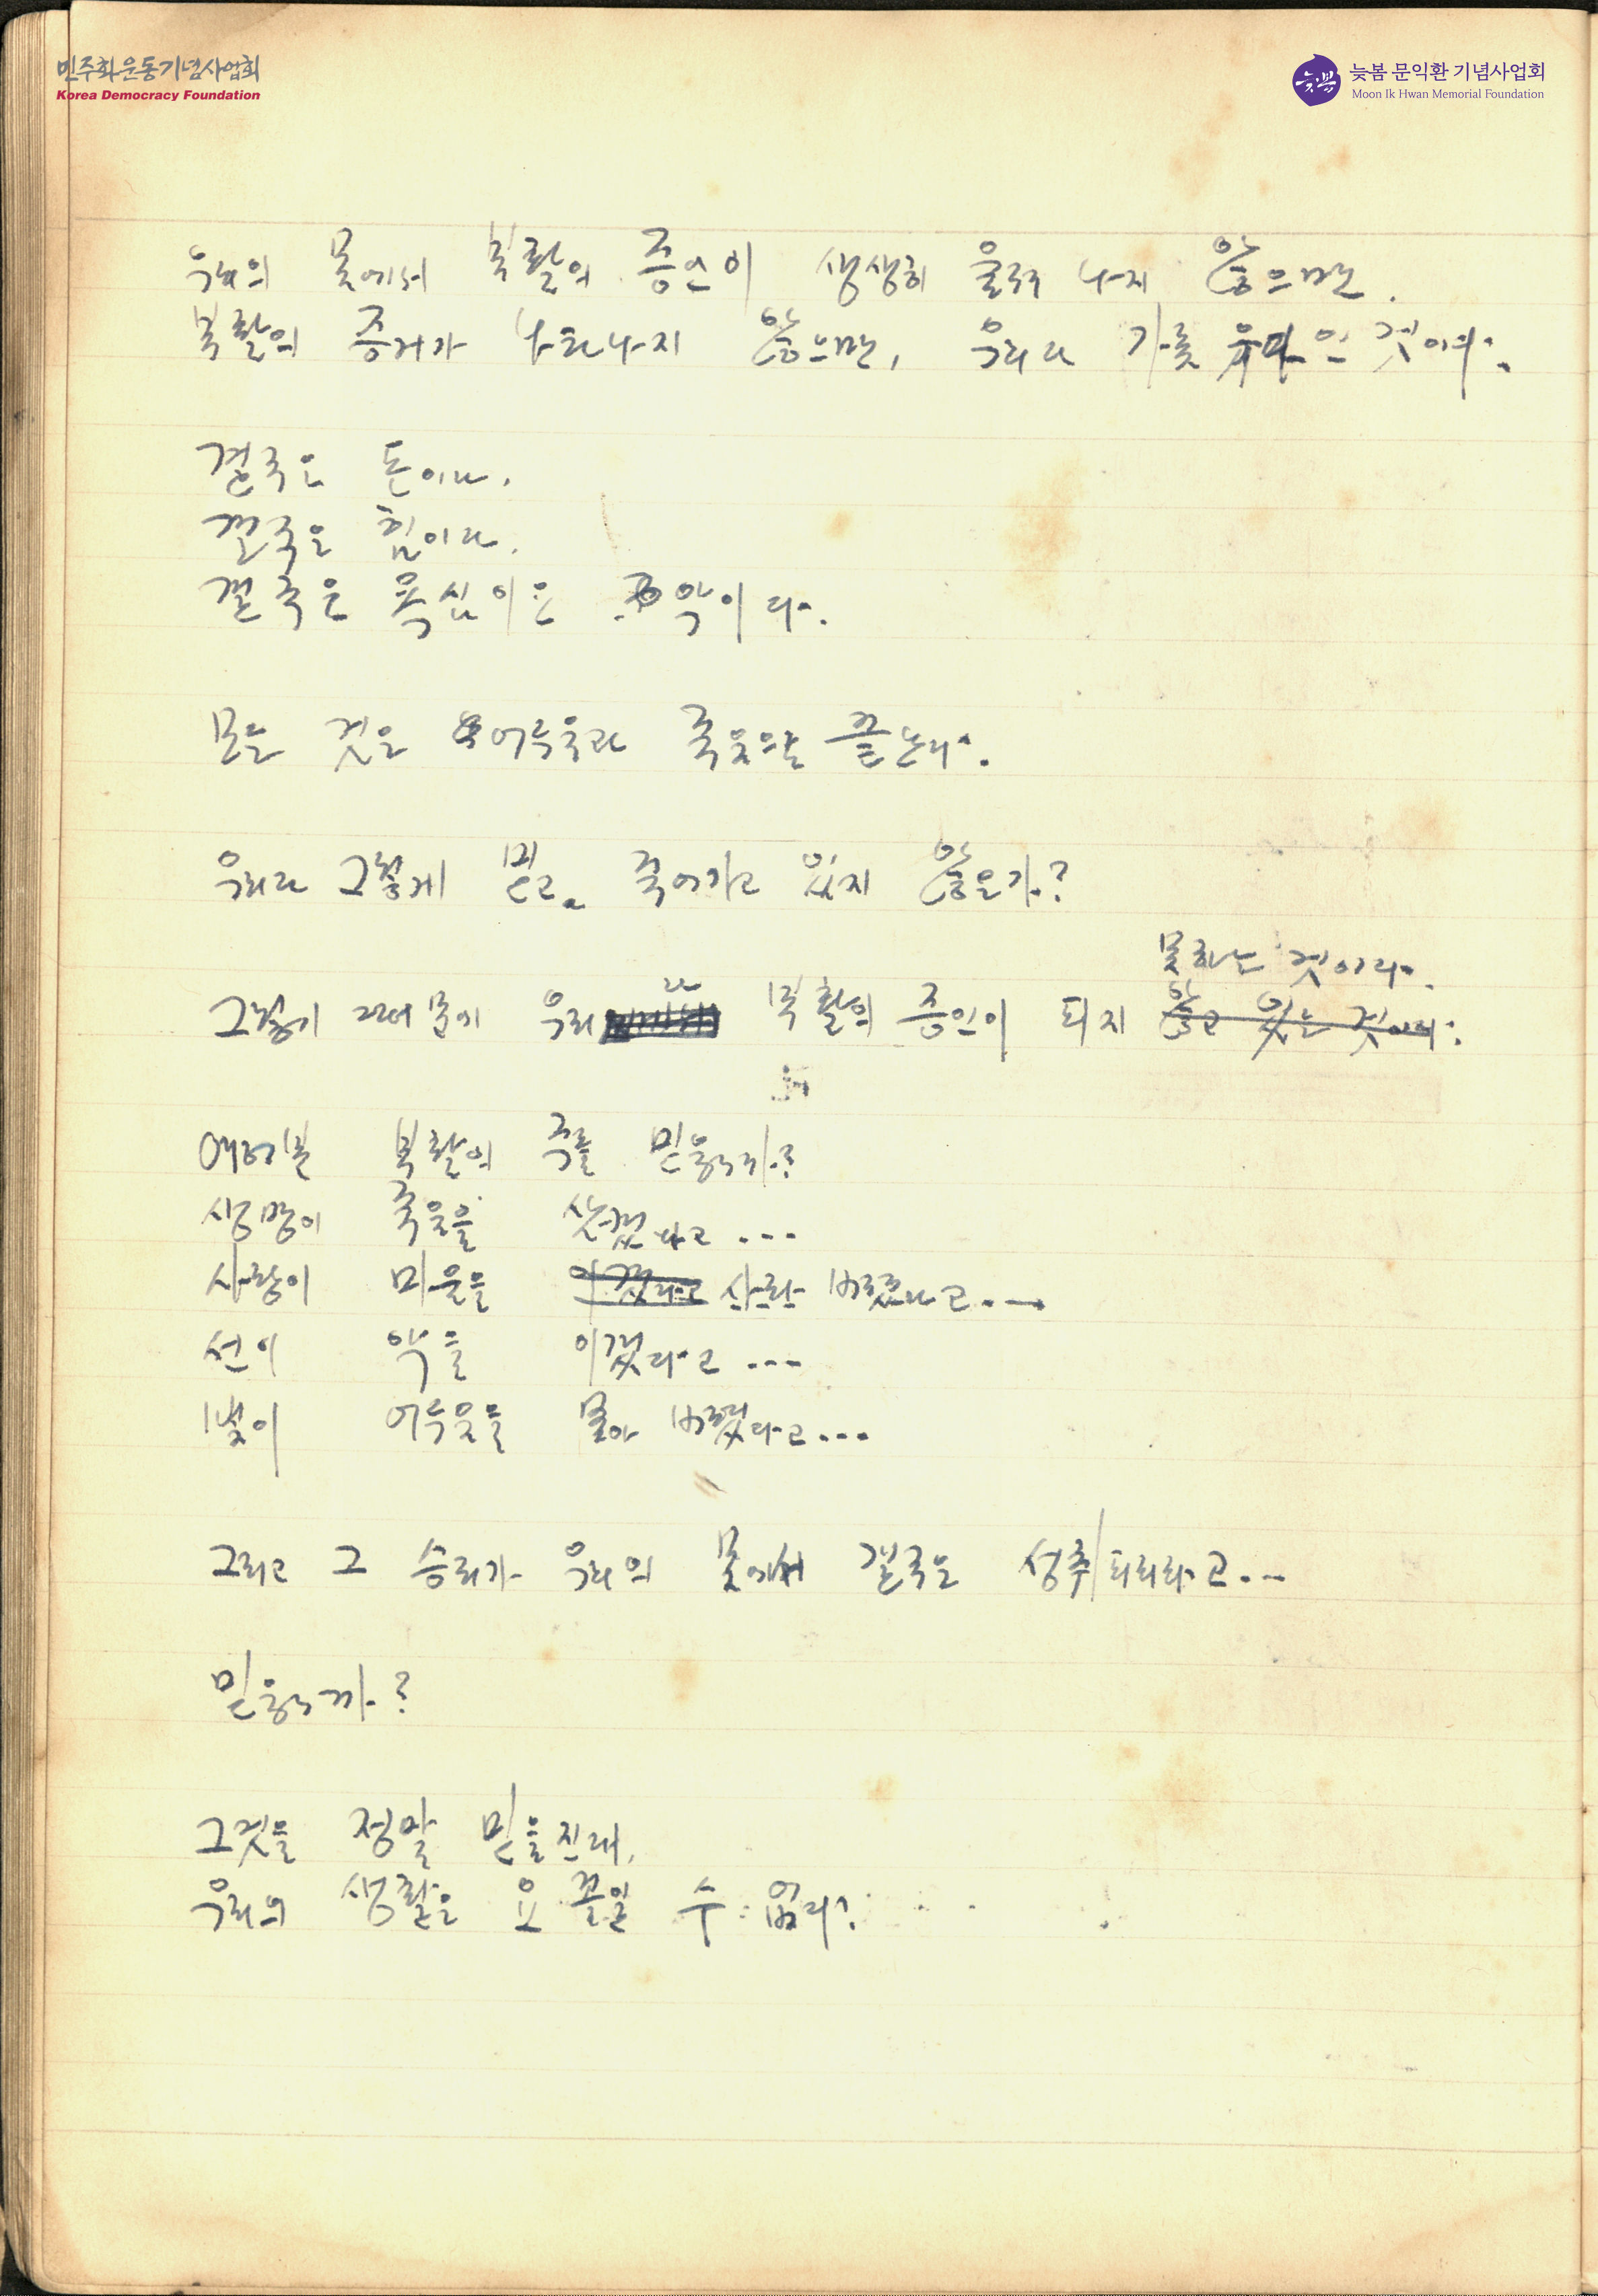 민주화운동기념사업회
Korea Democracy Foundation
늦봄 문익환 기념사업회
Moon Ik Hwan Memorial Foundation
우리의 몸에서 복활의 증인이 생생히 울려 나지 않으면.
복활의 증거가 나타나지 않으면, 우리는 가룟 유다인 것이다.
결국은 돈이다.
결국은 힘이다.
결국은 욕심이은 악이다.
모든 것은 어두움과 죽음으로 끝난다.
우리는 그렇게 믿고 죽어가고 있지 않은가?
못하는 것이다.
그렇기 때문에 우리는 복활의 증인이 되지 않고 있는 것이다.
여러분 복활의 주를 믿읍니까?
생명이 죽음을 삼켰다고 ...
사랑이 미움을 이겼다고 살라 버렸다고...
선이 악을 이겼다고 ...
빛이 어두움을 몰아 버렸다고...
그리고 그 승리가 우리의 몸에서 결국은 성취되리라고...
믿읍니까?
그것을 정말 믿을진대,
우리의 생활은 요 꼴일 수 없다.